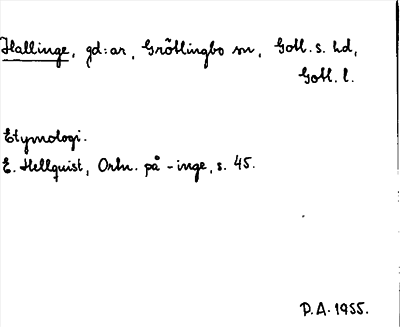 Hallinge, gd:ar, Grötlingbo sn, Gotl. s. hd,
Gotl. l.
Etymologi.
E. Hellquist, Ortn. på -inge, s. 45.
P.A. 1955.